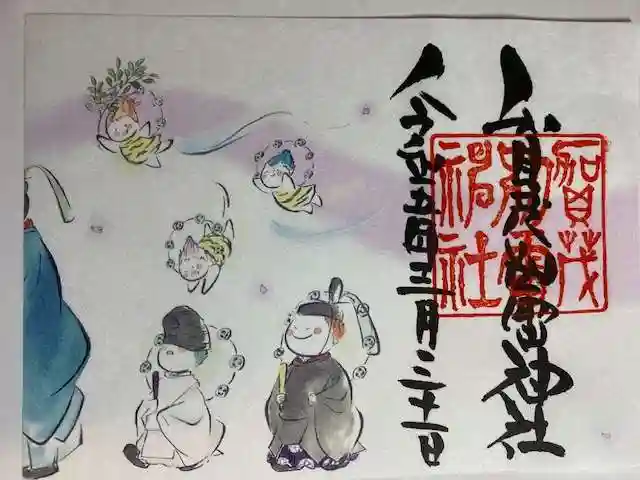 賀茂別雷神社
令和四年三月二十一日
賀茂
別雷
神社